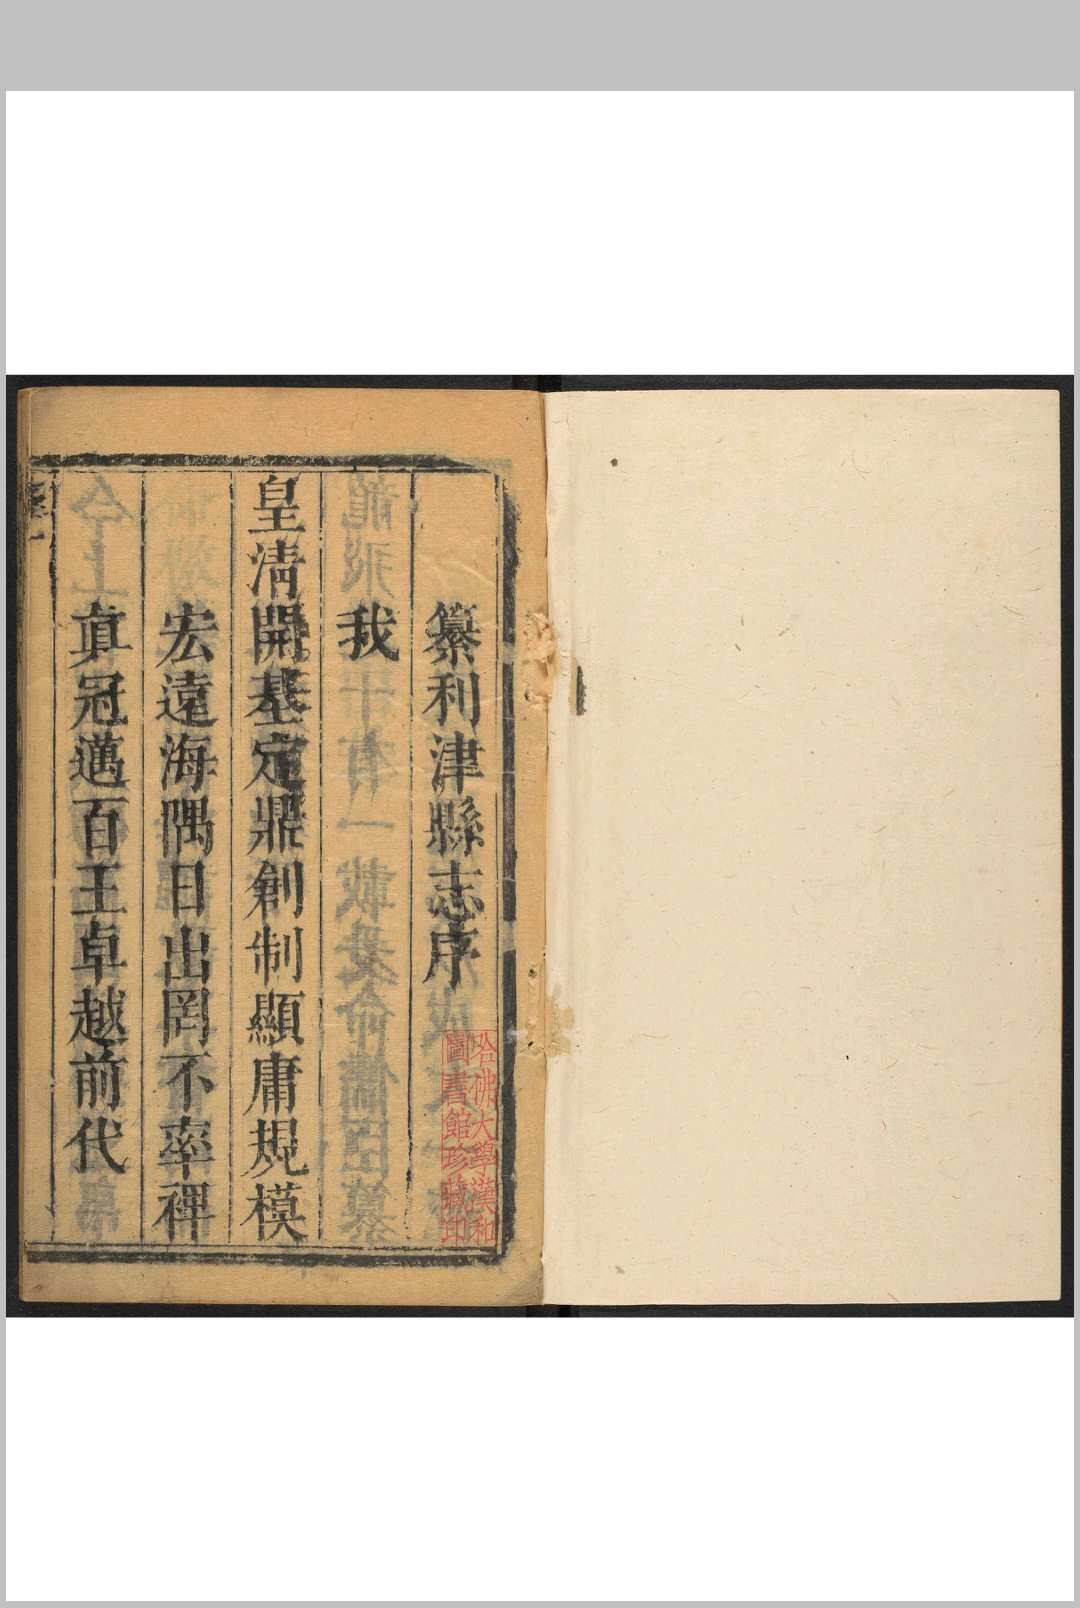 纂利津縣志序
我
皇淸開基定鼎創制顯庸規模
宏遠海隅日出罔不率禆
眞冠邁百王卓越前代
哈佛大學漢和
圖書館珍藏印